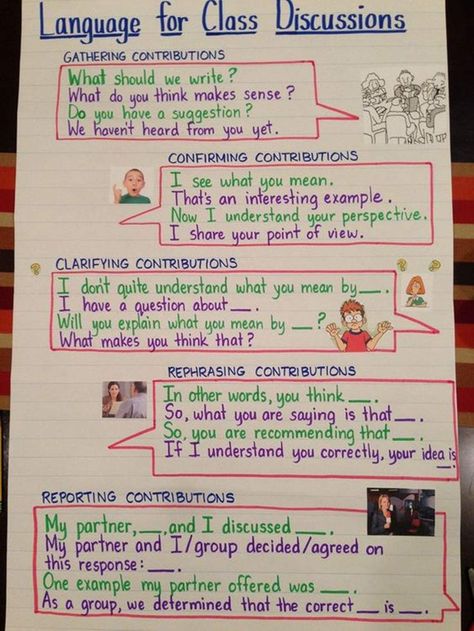 Language for Class Discussions
GATHERING CONTRIBUTIONS
What should we write?
What do you think makes sense?
Do you have a suggestion?
We haven't heard from you yet.
CONFIRMING CONTRIBUTIONS
I see what you mean.
That's an interesting example.
Now I understand your perspective.
I share your point of view.
CLARIFYING CONTRIBUTIONS
I don't quite understand what you mean by ___.
I have a question about ___.
Will you explain what you mean by ___?
What makes you think that?
REPHRASING CONTRIBUTIONS
In other words, you think ___.
So, what you are saying is that ___.
So, you are recommending that ___.
If I understand you correctly, your idea is
___.
REPORTING CONTRIBUTIONS
My partner, ___, and I discussed ___.
My partner and I/group decided/agreed on
this response: ___.
One example my partner offered was ___.
As a group, we determined that the correct ___ is ___.